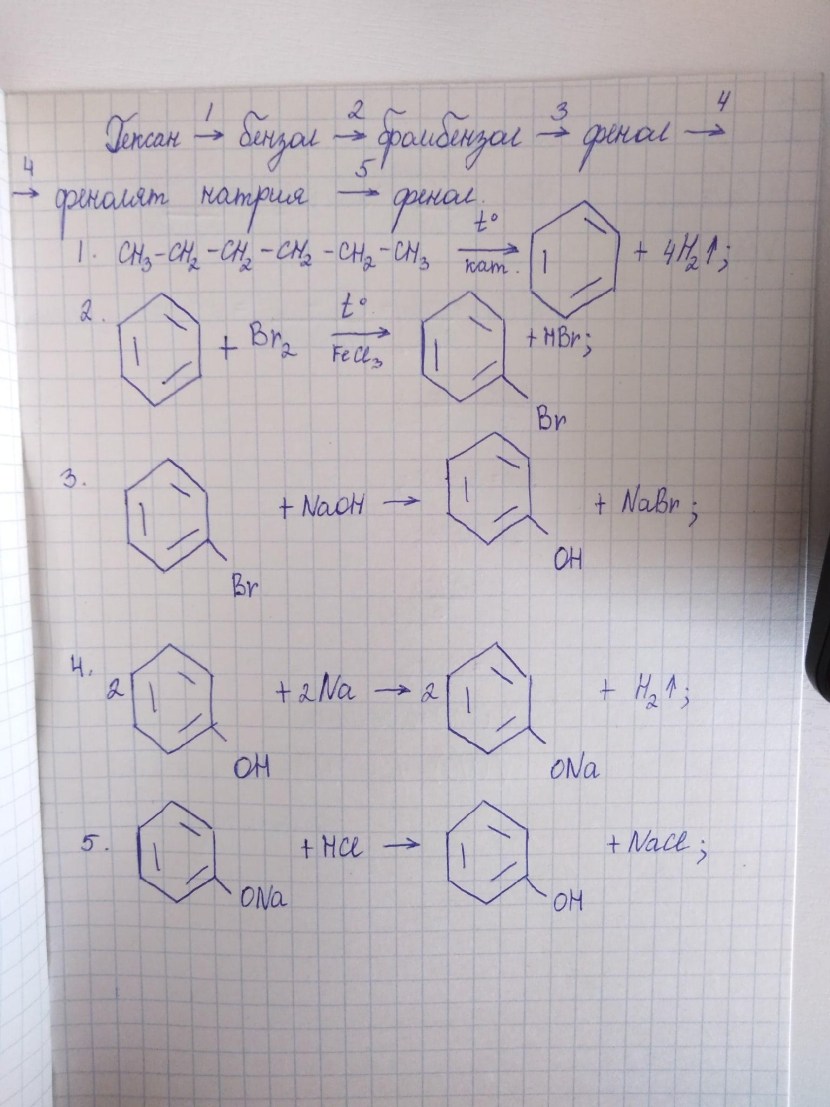 Гексан 1→ бензол 2→ бромбензол 3→ фенол 4→
4→ фенолят натрия 5→ фенол.
1. CH₃-CH₂-CH₂-CH₂-CH₂-CH₃ t° кат. → + 4H₂↑;
2. + Br₂ t° FeCl₃ → Br + HBr;
3. Br + NaOH → OH + NaBr;
4. 2 OH + 2Na → 2 ONa + H₂↑;
5. ONa + HCl → OH + NaCl;